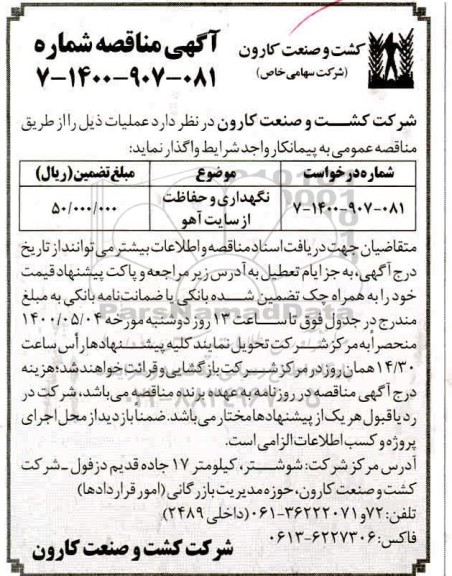 کشت و صنعت کارون
(شرکت سهامی خاص)
آگهی مناقصه شماره
۷-۱۴۰۰-۹۰۷-۰۸۱
شرکت کشت و صنعت کارون در نظر دارد عملیات ذیل را از طریق
مناقصه عمومی به پیمانکار واجد شرایط واگذار نماید:
شماره درخواست موضوع مبلغ تضمین (ریال)
۷-۱۴۰۰-۹۰۷-۰۸۱ نگهداری و حفاظت از سایت آهو ۵۰/۰۰۰/۰۰۰
متقاضیان جهت دریافت اسناد مناقصه و اطلاعات بیشتر می توانند از تاریخ
درج آگهی، به جز ایام تعطیل به آدرس زیر مراجعه و پاکت پیشنهاد قیمت
خود را به همراه چک تضمین شده بانکی یا ضمانت نامه بانکی به مبلغ
مندرج در جدول فوق تا ساعت ۱۳ روز دوشنبه مورخه ۱۴۰۰/۰۵/۰۴
منحصراً به مرکز شرکت تحویل نمایند کلیه پیشنهادها رأس ساعت
۱۴/۳۰ همان روز در مرکز شرکت بازگشایی و قرائت خواهند شد؛ هزینه
درج آگهی مناقصه در روزنامه به عهده برنده مناقصه می باشد، شرکت در
رد یا قبول هر یک از پیشنهادها مختار می باشد. ضمنا بازدید از محل اجرای
پروژه و کسب اطلاعات الزامی است.
آدرس مرکز شرکت: شوشتر، کیلومتر ۱۷ جاده قدیم دزفول - شرکت
کشت و صنعت کارون، حوزه مدیریت بازرگانی (امور قراردادها)
تلفن: ۷۲ و ۳۶۲۲۲۰۷۱-۰۶۱ (داخلی ۲۴۸۹)
فاکس: ۶۲۲۷۳۰۶-۰۶۱۳
شرکت کشت و صنعت کارون
ParsNamadData